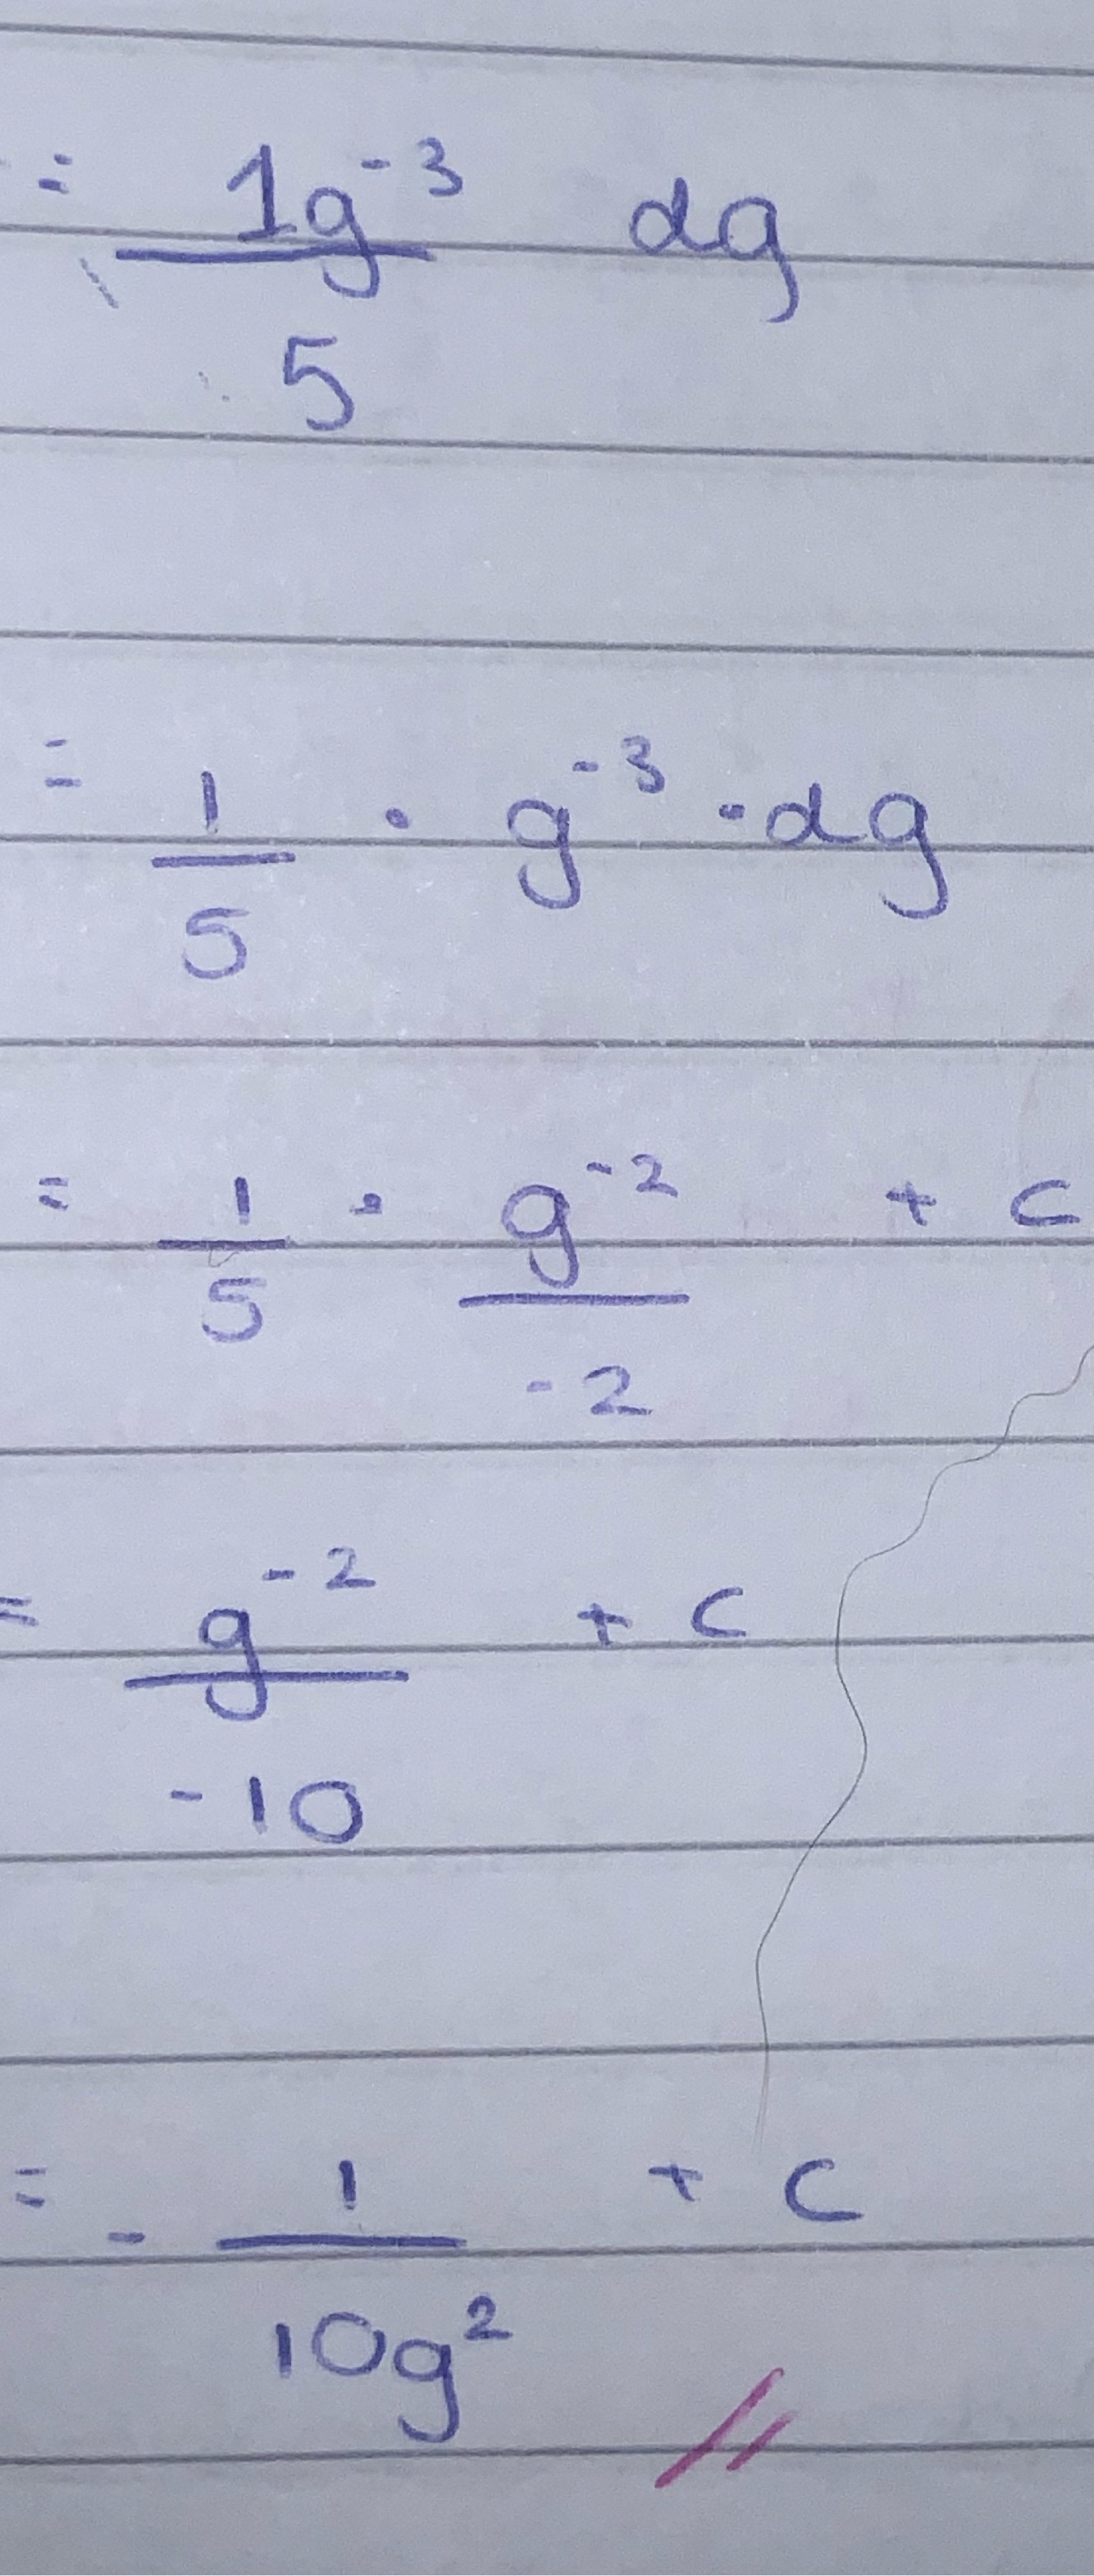 = 1g⁻³/5 dg
= 1/5 · g⁻³ · dg
= 1/5 · g⁻²/-2 + c
= g⁻²/-10 + c
= - 1/10g² + c